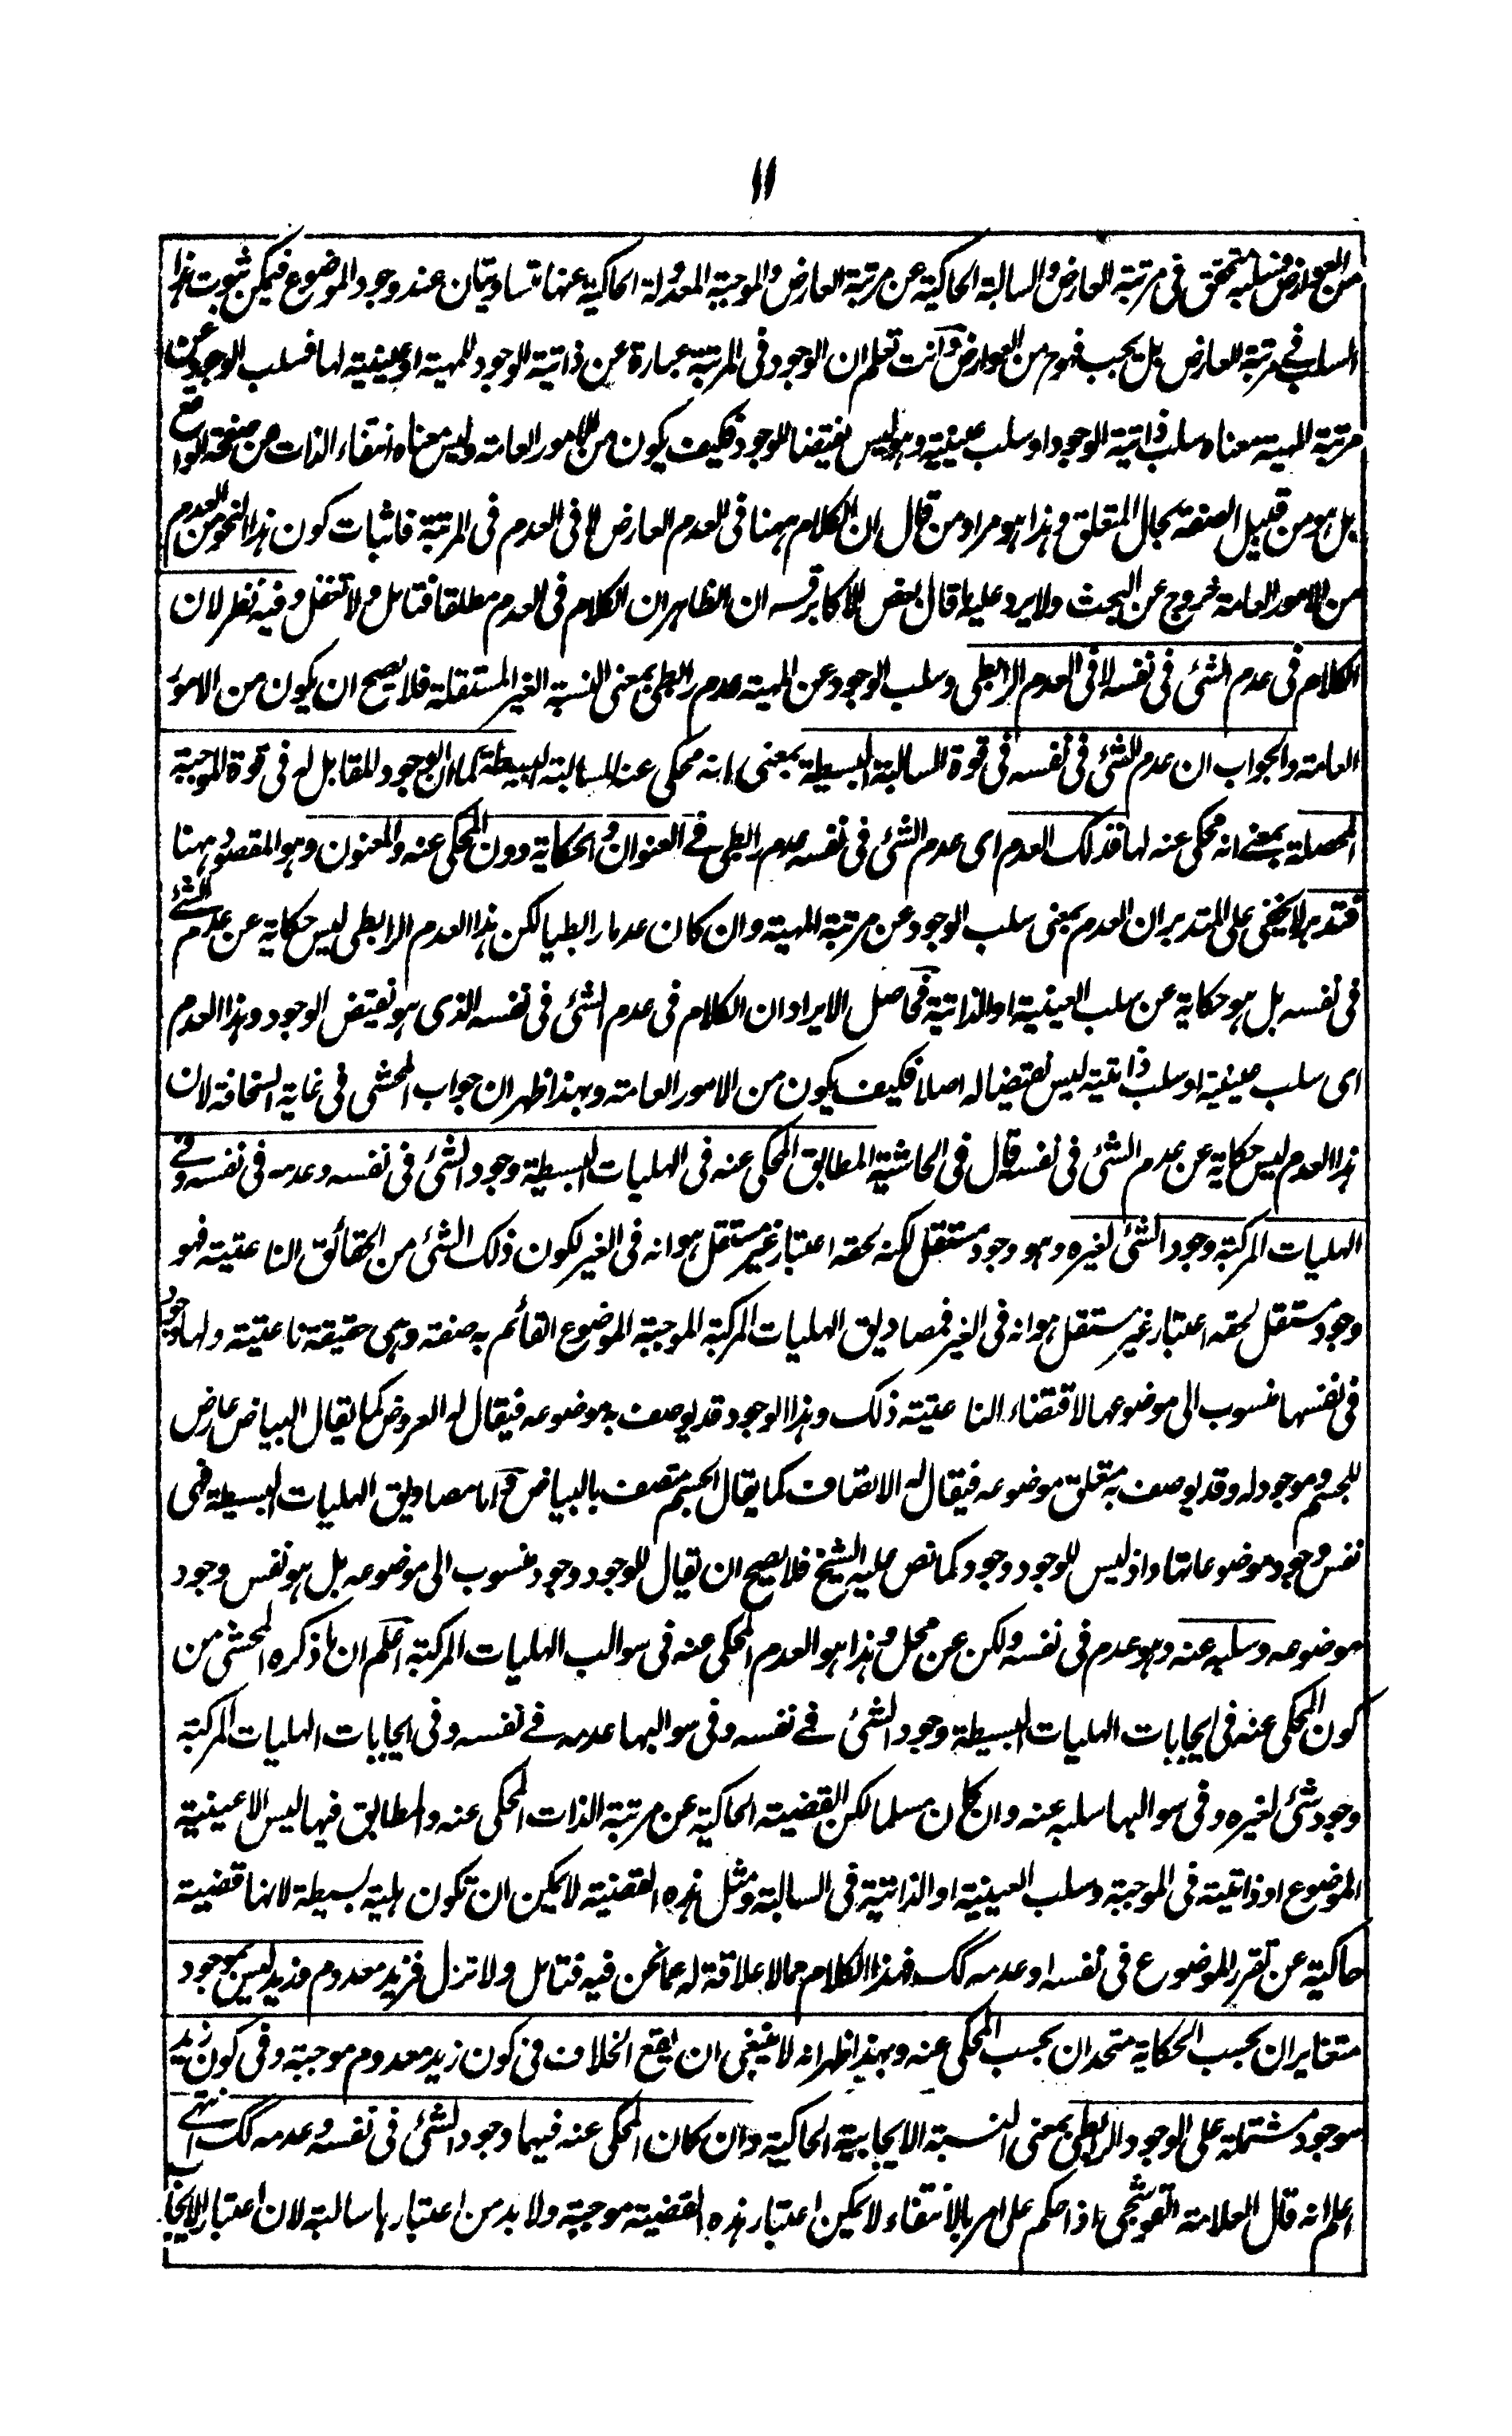 ١١
من العوارض فسلبه متحقق فى مرتبة العارض والسالبة الحاكية عن مرتبة العارض والموجبة المعدولة الحاكية عنها متساويتان عند وجود الموضوع فيمكن ثبوت هذا
السلب فے مرتبة العارض بل يجب فهو من العوارض وانت تعلم ان الوجود فى المرتبة عبارة عن ذاتية الوجود للمهية او عينية لها فسلب الوجود عن
مرتبة المهية معناه سلب ذاتية الوجود او سلب عينية وهو ليس نقيضا للوجود فكيف يكون من الامور العامة وليس معناه انتفاء الذات من صفحة الواقع
بل هو من قبيل الصفة بحال المتعلق وهذا هو مراد من قال ان الكلام ههنا فى العدم العارض لا فى العدم فى المرتبة فاثبات كون هذا النحو من العدم
من الامور العامة خروج عن البحث ولا يرد عليه ما قال بعض الاكابر قسه ان الظاهر ان الكلام فى العدم مطلقا فتامل ولا تغفل وفيه نظر لان
الكلام فى عدم الشئ فى نفسه لا فى العدم الرابطى وسلب الوجود عن المهية عدم رابطى بمعنى النسبة الغير المستقلة فلا يصح ان يكون من الامور
العامة والجواب ان عدم الشئ فى نفسه فى قوة السالبة البسيطة بمعنى انه محكى عنه للسالبة البسيطة كما ان الوجود المقابل له فى قوة الموجبة
المحصلة بمعنے انه محكى عنه لها فذلك العدم اى عدم الشئ فى نفسه عدم رابطى فے العنوان والحكاية دون المحكى عنه والمعنون وهو المقصود ههنا
فتدبر لا يخفى على المتدبر ان العدم بمعنى سلب الوجود عن مرتبة المهية وان كان عدما رابطيا لكن هذا العدم الرابطى ليس حكاية عن عدم الشئ
فى نفسه بل هو حكاية عن سلب العينية او الذاتية فحاصل الايراد ان الكلام فى عدم الشئ فى نفسه الذى هو نقيض الوجود وهذا العدم
اى سلب عينية او سلب ذاتية ليس نقيضا له اصلا فكيف يكون من الامور العامة وبهذا ظهر ان جواب المحشى فى غاية السخافة لان
هذا العدم ليس حكاية عن عدم الشئ فى نفسه قال فى الحاشية المطابق المحكى عنه فى الهليات البسيطة وجود الشئ فى نفسه وعدمه فى نفسه وفے
الهليات المركبة وجود الشئ لغيره وهو وجود مستقل لكنه لحقه اعتبار غير مستقل هو انه فى الغير لكون ذلك الشئ من الحقائق الناعتية فهو
وجود مستقل لحقه اعتبار غير مستقل هو انه فى الغير فمصاديق الهليات المركبة الموجبة الموضوع القائم به صفة وهى حقيقة ناعتية ولها وجود
فى نفسها منسوب الى موضوعها لاقتضاء الناعتية ذلك وهذا الوجود قد يوصف به موضوعه فيقال له العروض كما يقال البياض عارض
للجسم وموجود له وقد يوصف به متعلق موضوعه فيقال له الاتصاف كما يقال الجسم متصف بالبياض واما مصاديق الهليات البسيطة فهى
نفس وجود موضوعاتها واذ ليس للوجود وجود كما نص عليه الشيخ فلا يصح ان يقال للوجود وجود منسوب الى موضوعه بل هو نفس وجود
موضوعه وسلبه عنه وهو عدم فى نفسه ولكن عن محل وهذا هو العدم المحكى عنه فى سوالب الهليات المركبة اعلم ان ما ذكره المحشى من
كون المحكى عنه فى ايجابات الهليات البسيطة وجود الشئ فے نفسه وفى سوالبها عدمه فے نفسه وفى ايجابات الهليات المركبة
وجود شئ لغيره وفى سوالبها سلبه عنه وان كان مسلما لكن القضية الحاكية عن مرتبة الذات المحكى عنه والمطابق فيها ليس الا عينية
الموضوع او ذاتية فى الموجبة وسلب العينية او الذاتية فى السالبة ومثل هذه القضية لا يمكن ان تكون هلية بسيطة لانها قضية
حاكية عن تقرر الموضوع فى نفسه او عدمه كك فهذا الكلام مما لا علاقة له عما نحن فيه فتامل ولا تزل فزيد معدوم وزيد ليس بموجود
متغايران بحسب الحكاية متحدان بحسب المحكى عنه وبهذا ظهر انه لا ينبغى ان يقع الخلاف فى كون زيد معدوم موجبة وفى كون زيد
موجود مشتملة على الوجود الرابطى بمعنى النسبة الايجابية الحاكية وان كان المحكى عنه فيهما وجود الشئ فى نفسه وعدمه كك انتهے
اعلم انه قال العلامة القوشجى اذا حكم على امر بالانتفاء لا يمكن اعتبار هذه القضية موجبة ولا بد من اعتبارها سالبة لان اعتبار الايجاب